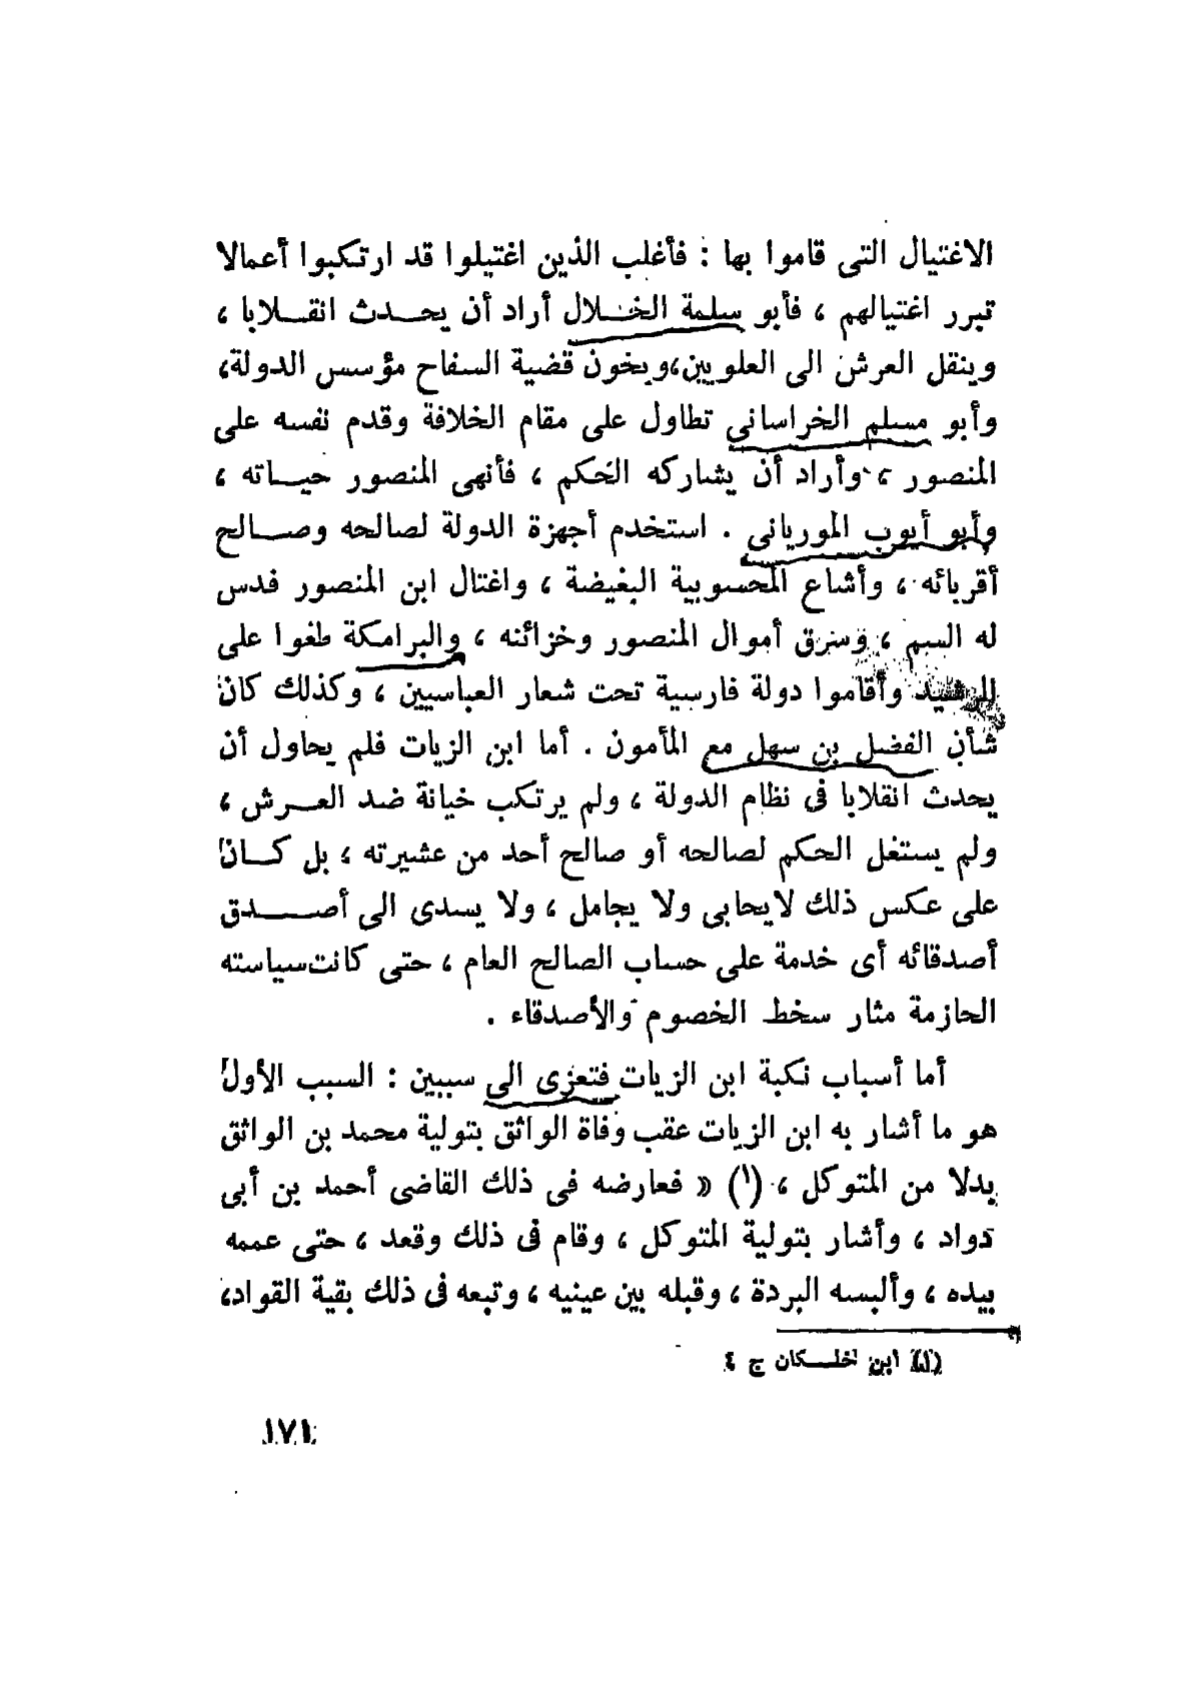 الاغتيال التى قاموا بها : فأغلب الذين اغتيلوا قد ارتكبوا أعمالا
تبرر اغتيالهم ، فأبو سلمة الخلال أراد أن يحدث انقلابا ،
وينقل العرش الى العلويين،ويخون قضية السفاح مؤسس الدولة،
وأبو مسلم الخراسانى تطاول على مقام الخلافة وقدم نفسه على
المنصور ، وأراد أن يشاركه الحكم ، فأنهى المنصور حياته ،
وأبو أيوب الموريانى . استخدم أجهزة الدولة لصالحه وصالح
أقربائه ، وأشاع المحسوبية البغيضة ، واغتال ابن المنصور فدس
له السم ، وسرق أموال المنصور وخزائنه ، والبرامكة طغوا على
الرشيد وأقاموا دولة فارسية تحت شعار العباسيين ، وكذلك كان
شأن الفضل بن سهل مع المأمون . أما ابن الزيات فلم يحاول أن
يحدث انقلابا فى نظام الدولة ، ولم يرتكب خيانة ضد العرش ،
ولم يستغل الحكم لصالحه أو صالح أحد من عشيرته ، بل كان
على عكس ذلك لايحابى ولا يجامل ، ولا يسدى الى أصدق
أصدقائه أى خدمة على حساب الصالح العام ، حتى كانت سياسته
الحازمة مثار سخط الخصوم والأصدقاء .
أما أسباب نكبة ابن الزيات فتعزى الى سببين : السبب الأول
هو ما أشار به ابن الزيات عقب وفاة الواثق بتولية محمد بن الواثق
بدلا من المتوكل ، (١) « فعارضه فى ذلك القاضى أحمد بن أبى
دواد ، وأشار بتولية المتوكل ، وقام فى ذلك وقعد ، حتى عممه
بيده ، وألبسه البردة ، وقبله بين عينيه ، وتبعه فى ذلك بقية القواد،
(١) ابن خلكان ج ٤
١٧١